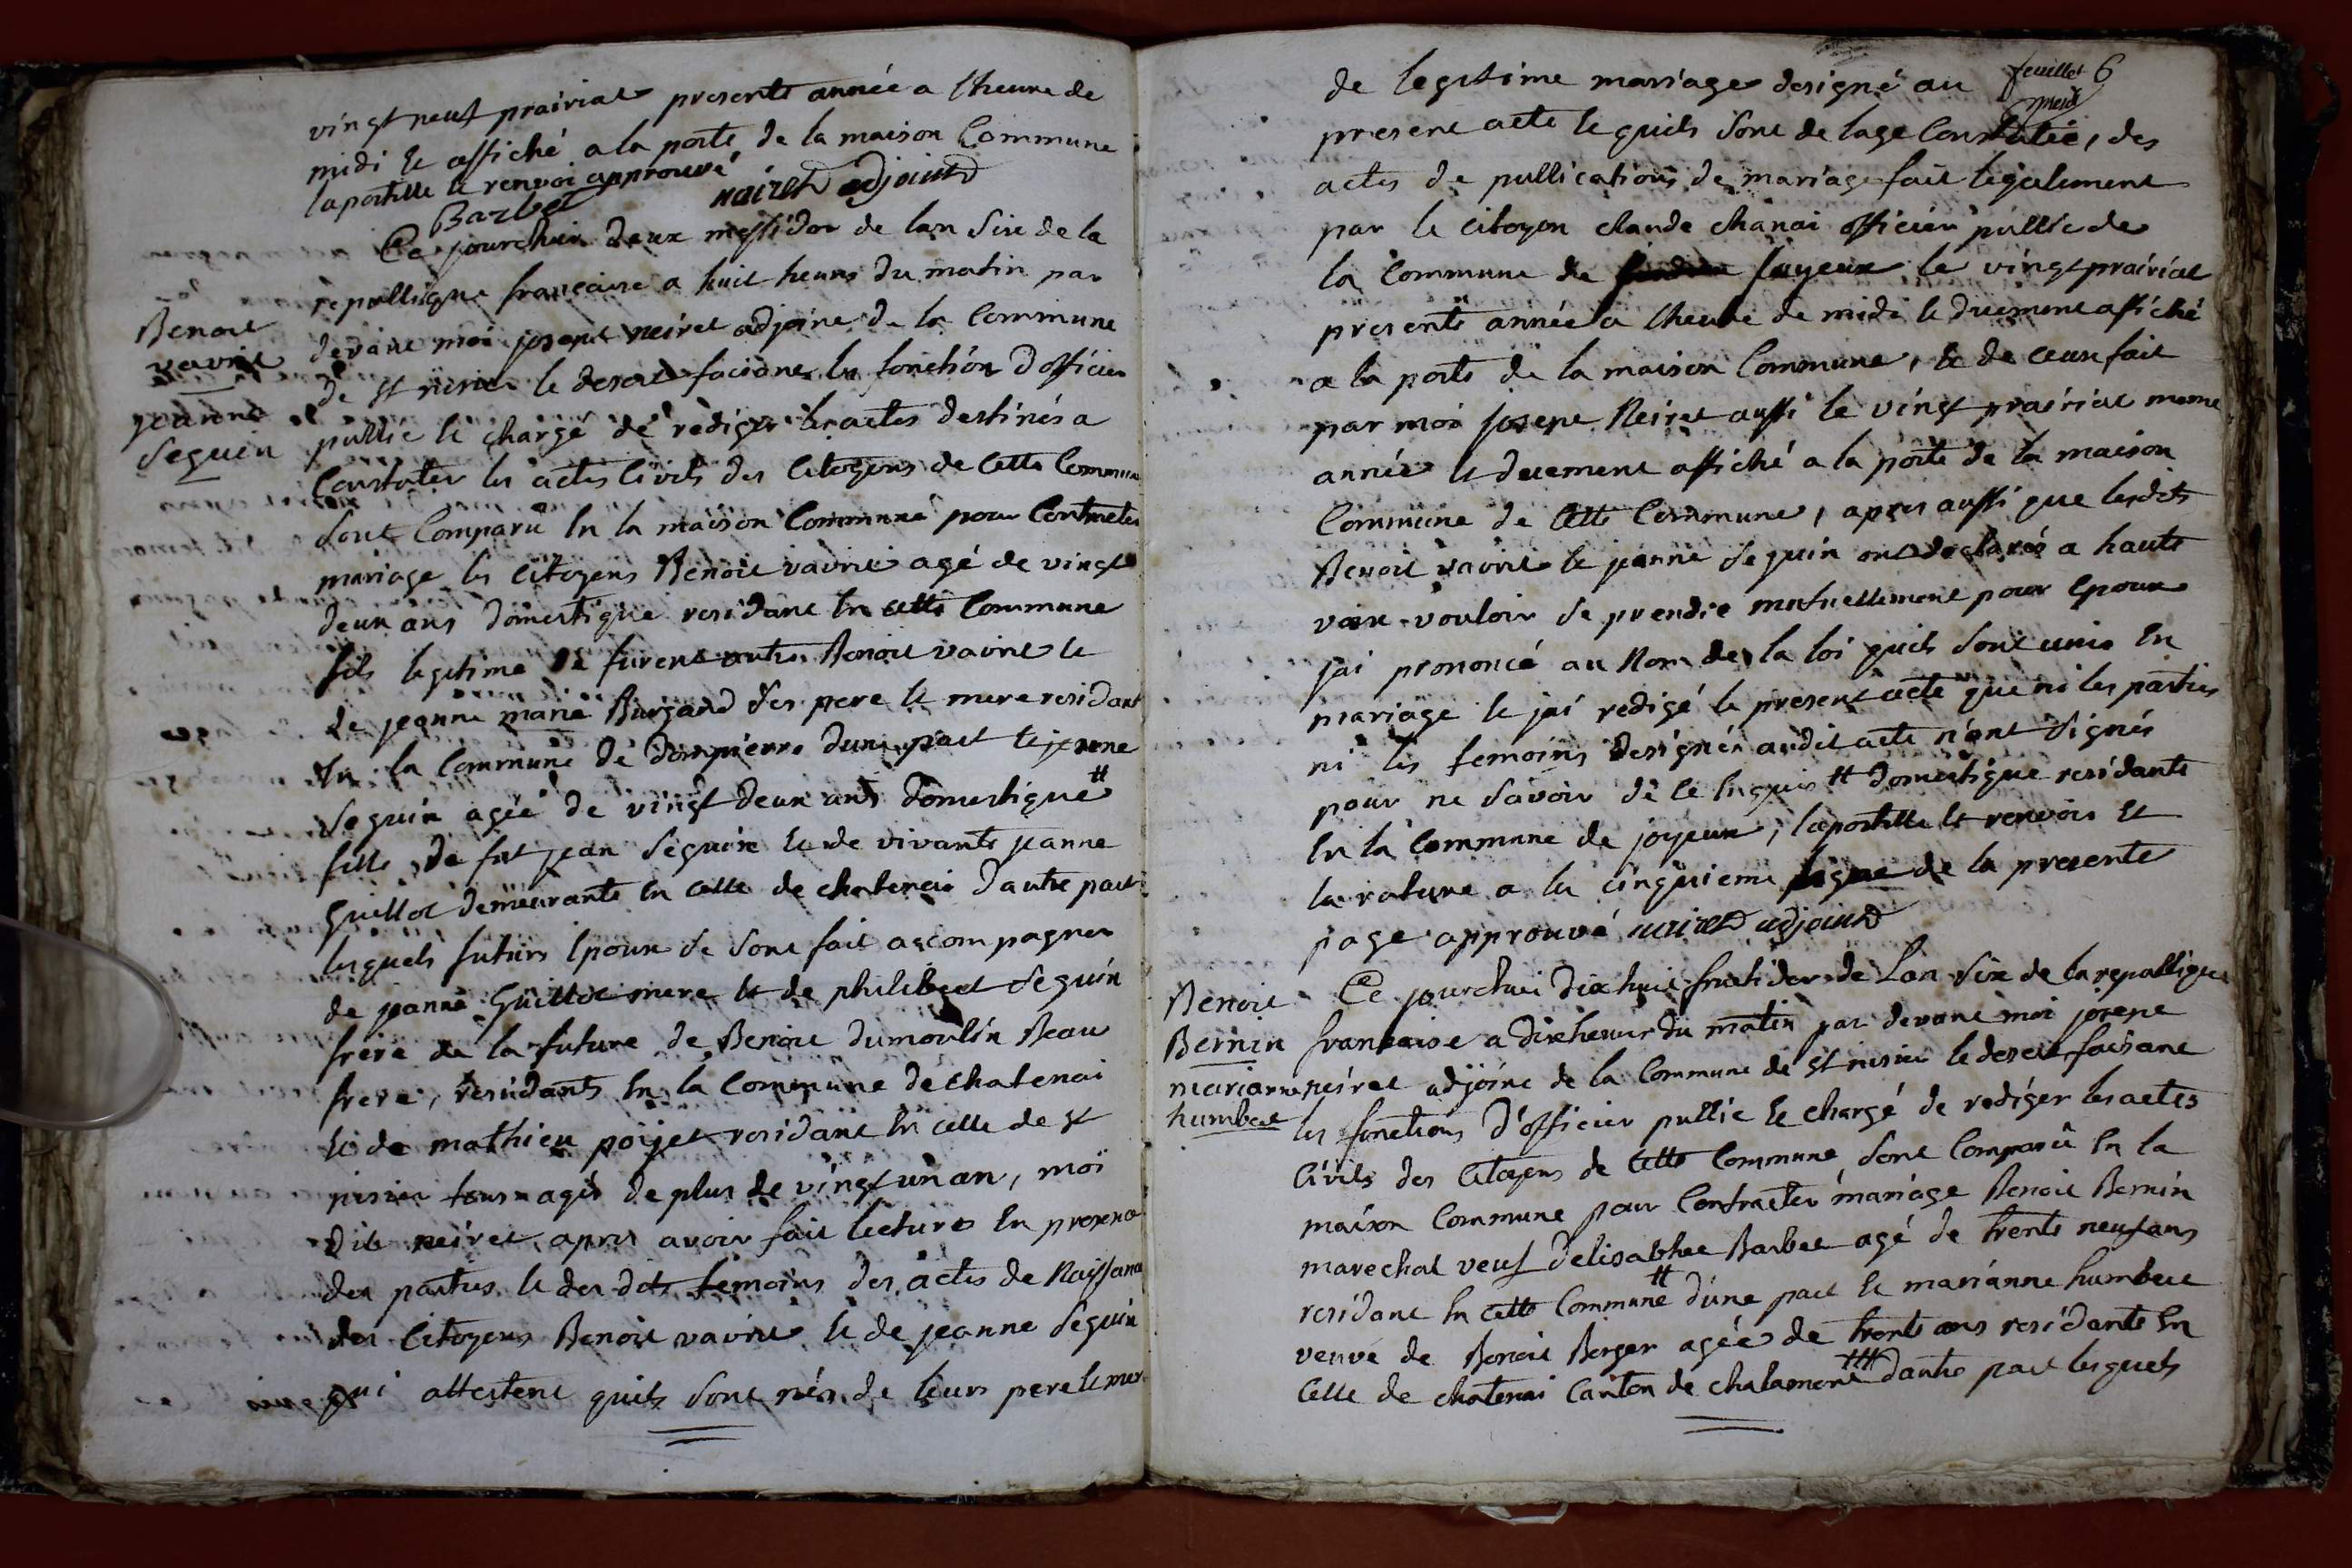 vingt neuf prairial presente année a lheure de
midi et affiché a la porte de la maison Commune
lapostille et renvoi approuvé
Barbet neiret adjoint
Ce jourdhui deux messidor de lan six de la
republique francaise a huit heures du matin par
Benoit
vavrit
jeanne
seguin
devant moi josept neiret adjoint de la Commune
de st nisier le desert faisant les fonction dofficier
public et chargé de rediger les actes destinés a
Constater les actes Civils des Citoyens de Cette Commune
sont Comparu En la maison Commune pour Contracter
mariage les Citoyens Benoit vavrit agé de vingt
deux ans domestique residant En cette Commune
fils legitime de furent Benoit vavrit et
de jeanne marie Burgand ses pere et mere residant
En la Commune de Dompierre dune part et jeanne
Seguin agée de vingt deux ans domestique #
fille de fut jean Seguin et de vivante jeanne
Guillot demeurante En celle de chatenai dautre part
lesquels futurs Epoux se sont fait accompagner
de jeanne Guillot mere et de philibert Seguin
frere de la future de Benoit dumoulin Beau
frere, residants En la Commune de chatenai
Et de mathieu poijet residant En celle de st
nisier tous agés de plus de vingt un an, moi
dit neiret, apres avoir fait lecture En presence
des parties et des dits temoins des actes de Naissance
des Citoyens Benoit vavrit et de jeanne Seguin
qui attestent quils sont nés de leurs pere et mere
feuillet 6
de legitime mariage designé au
present acte et quils sont de lage Constatée, des
actes de publications de mariage fait legalement
par le Citoyen claude chanai officier public de
la Commune de joyeux le vingt prairial
presente année a lheure de midi et duement affiché
a la porte de la maison Commune, et de ceux fait
par moi josept Neiret aussi le vingt prairial meme
année et duement affiché a la porte de la maison
Commune de Cette Commune, apres aussi que lesdits
Benoit vavrit et jeanne Seguin ont declarés a haute
voix vouloir se prendre mutuellement pour Epoux
jai prononcé au Nom de la loi quils sont unis En
mariage et jai redigé le present acte que ni les parties
ni les temoins designés audit acte nont signés
pour ne savoir de ce Enquis # domestique residante
En la Commune de joyeux, lapostille et renvois et
la rature a la cinquieme ligne de la presente
page approuvé neiret adjoint
Benoit
Bernin
marianne
humbert
Ce jourdhui dix huit fructidor de Lan six de la republique
francaise a dix heures du matin par devant moi josept
neiret adjoint de la Commune de st nisier le desert faisant
les fonctions d'officier public et chargé de rediger les actes
Civils des Citoyens de Cette Commune sont Comparû En la
maison Commune pour Contracter mariage Benoit Bernin
marechal veuf delisabthee Barbet agé de trente neuf ans
residant En Cette Commune # dune part et marianne humbert
veuve de Benoit Berger agée de trente ans residante En
Celle de chatenai Canton de chalamont ### dautre part lesquels